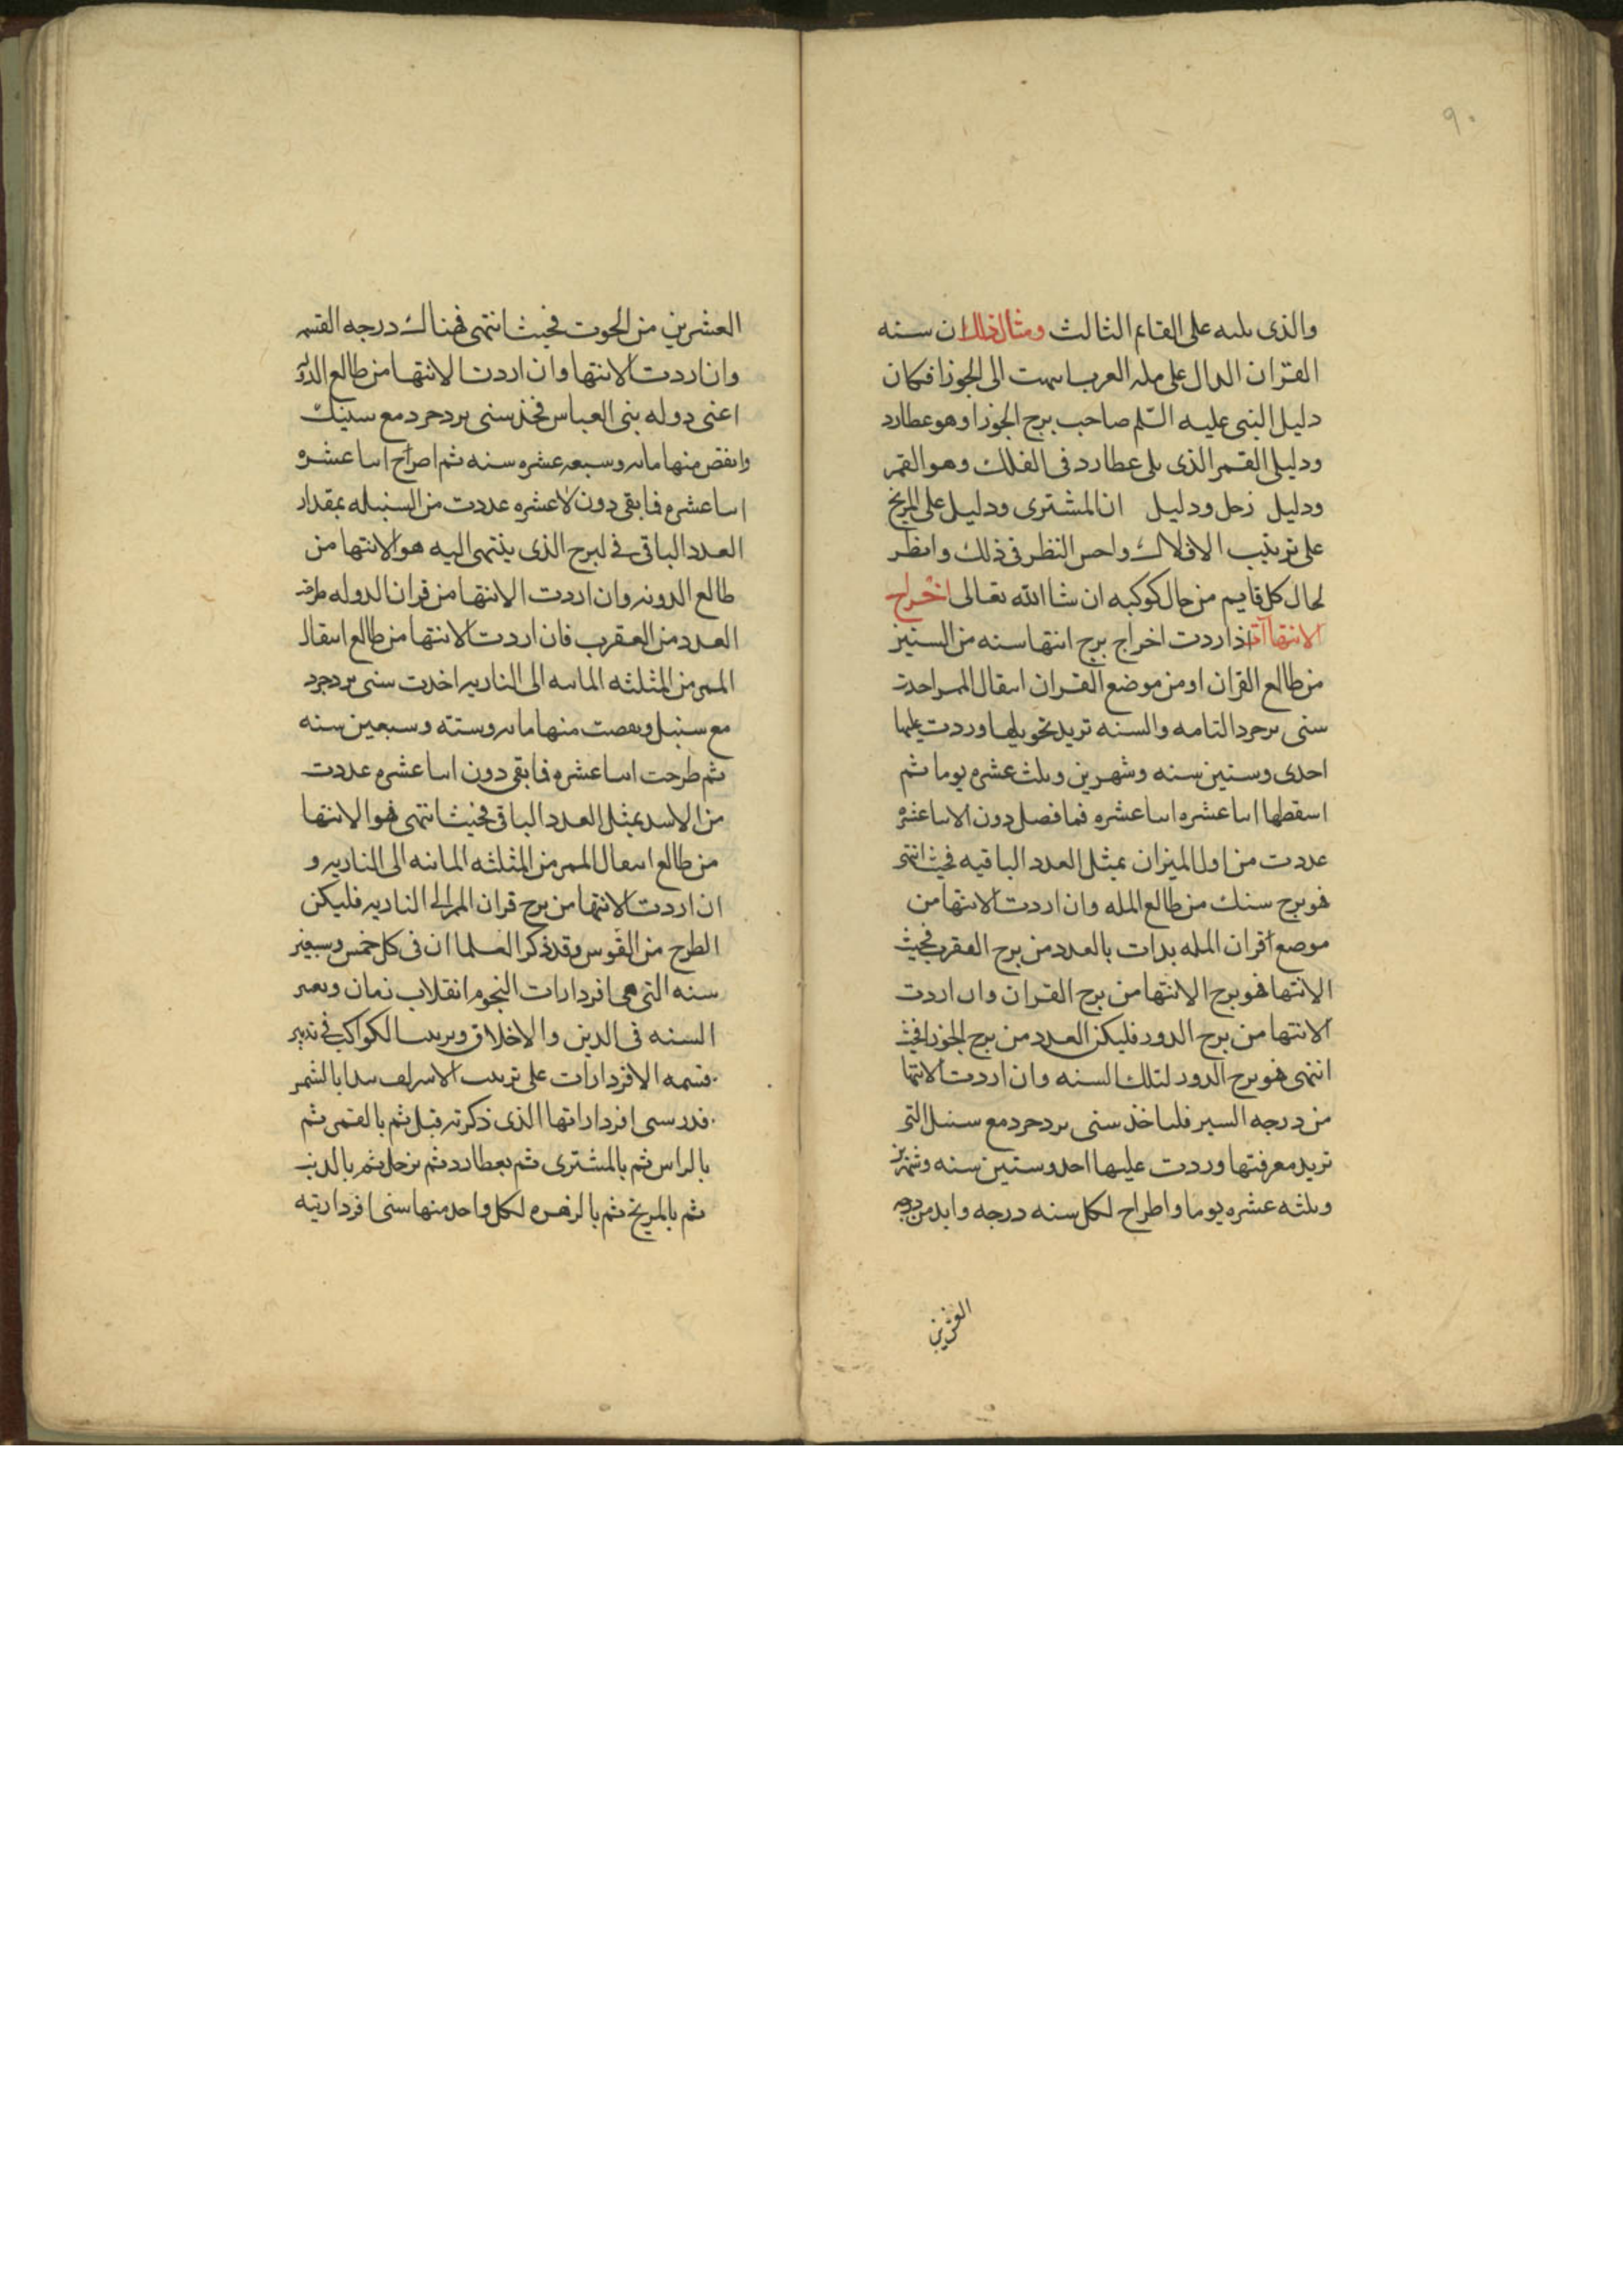 ٩٠
والذى يليه على القايم الثالث ومثال ذلك ان سنه
القران الدال على مله العرب انتهت الى الجوزا فكان
دليل النبى عليه السلم صاحب برج الجوزا وهو عطارد
ودليل القمر الذى يلى عطارد فى الفلك وهو القمر
ودليل زحل ودليل ان المشترى ودليل على المريخ
على ترتيب الافلاك واحسن النظر فى ذلك وانظر
لحال كل قايم من حال كوكبه ان شا الله تعالى اخراج
الانتهاآت اذا اردت اخراج برج انتها سنه من السنين
من طالع القران او من موضع القران انتقال الممر اخذت
سنى يزدجرد التامه والسنه تريد تحويلها وردت عليها
احدى وستين سنه وشهرين وثلث عشره يوما ثم
اسقطها اثنا عشره اثنا عشره فما فضل دون الاثنا عشره
عددت من اول الميزان بمثل العدد الباقيه فحيث انتهى
فهو برج سنتك من طالع المله وان اردت الانتها من
موضع اقران المله بدات بالعدد من برج العقرب فحيث
الانتها فهو برج الانتها من برج القران وان اردت
الانتها من برج الدور فليكن العدد من برج الجوزا فحيث
انتهى هو برج الدور لتلك السنه وان اردت الانتها
من درجه السير فلتاخذ سنى يزدجرد مع سنتك التى
تريد معرفتها وردت عليها احد وستين سنه وشهرين
وثلثه عشره يوما واطراح لكل سنه درجه وابد من درجه
العشرين
العشرين من الحوت فحيث انتهى فهناك درجه القسمه
وان اردت الانتها وان اردت الانتها من طالع الدوله
اعنى دوله بنى العباس فخذ سنى يزدجرد مع سنتك
وانقص منها مايه وسبعه عشره سنه ثم اصراح اثنا عشره
اثنا عشره فما بقى دون الاعشره عددت من السنبله بمقدار
العدد الباقى فى لبرج الذى ينتهى اليه هو الانتها من
طالع الدونه وان اردت الانتها من قران الدوله طرفه
العدد من العقرب فان اردت الانتها من طالع انتقال
الممر من المثلثه المائيه الى الناريه اخذت سنى يزدجرد
مع سنتك ونقصت منها مايه وستته وسبعين سنه
ثم طرحت اثنا عشره فما بقى دون اثنا عشره عددت
من الاسد بمثل العدد الباقى فحيث انتهى فهو الانتها
من طالع انتقال الممر من المثلثه المائيه الى الناريه و
ان اردت الانتها من برج قران الممر الى الناريه فليكن
الطرح من القوس وقد ذكر العلما ان فى كل خمس وسبعين
سنه التى هى افردارات النجوم انقلاب زمان وتغير
السنه فى الدين والاخلاق وترتيب الكواكب فى تدبير
قسمه الافردارات على ترتيب الاشراف يبدا بالشمس
فدر سنى افرداراتها الذى ذكرته قبل ثم بالقمر ثم
بالراس ثم بالمشترى ثم بعطارد ثم بزحل ثم بالذنب
ثم بالمريخ ثم بالزهره لكل واحد منها سنى افرداريته